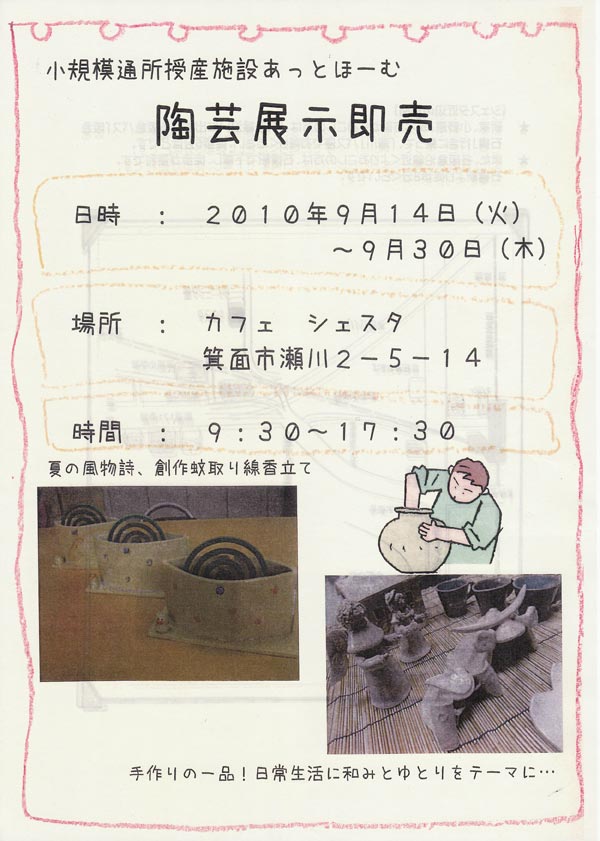 小規模通所授産施設あっとほーむ
陶芸展示即売
日時 : 2010年9月14日(火)
~9月30日(木)
場所 : カフェ シェスタ
箕面市瀬川2-5-14
時間 : 9:30~17:30
夏の風物詩、創作蚊取り線香立て
手作りの一品!日常生活に和みとゆとりをテーマに…